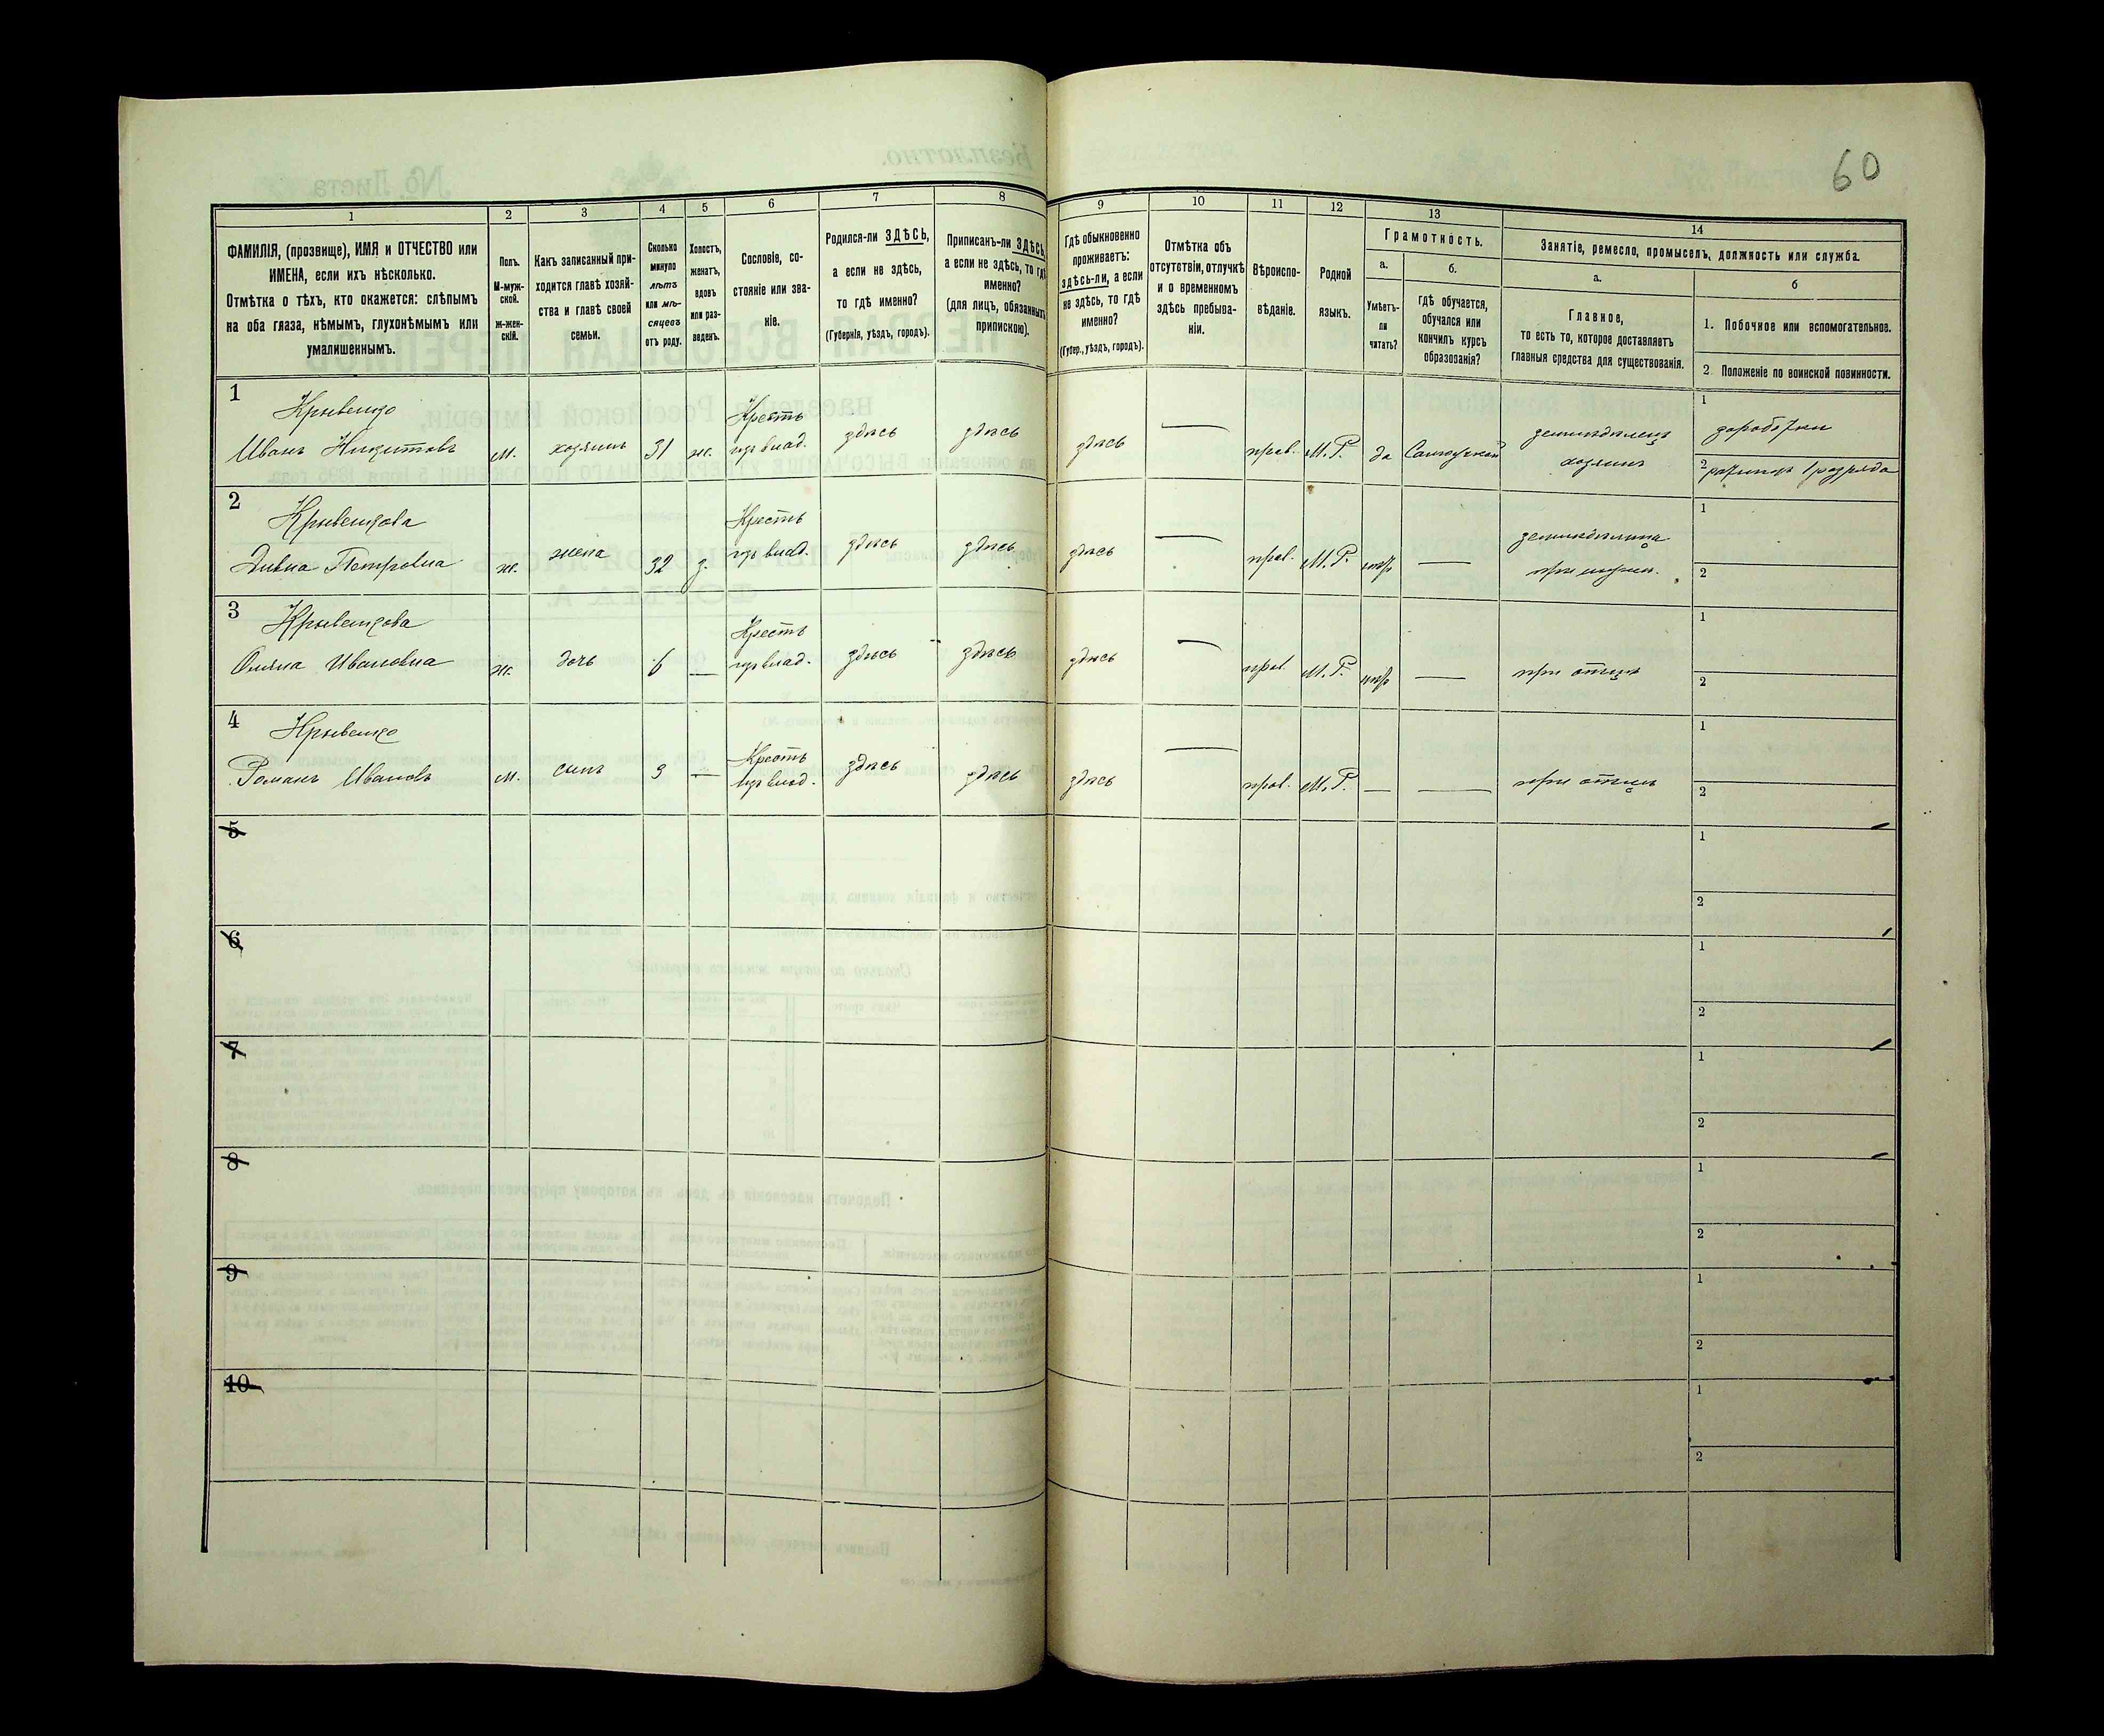 60
1
2
3
4
5
6
7
8
9
10
11
12
13
14
ФАМИЛІЯ, (прозвище), ИМЯ и ОТЧЕСТВО или
ИМЕНА, если ихъ нѣсколько.
Отмѣтка о тѣхъ, кто окажется: слѣпымъ
на оба глаза, нѣмымъ, глухонѣмымъ или
умалишеннымъ.
Полъ.
М-муж-
ской.
ж-жен-
скій.
Какъ записанный при-
ходится главѣ хозяй-
ства и главѣ своей
семьи.
Сколько
минуло
лѣтъ
или мѣ-
сяцевъ
отъ роду.
Холостъ,
женатъ,
вдовъ
или раз-
веденъ.
Сословіе, со-
стояніе или зва-
ніе.
Родился-ли ЗДѢСЬ,
а если не здѣсь,
то гдѣ именно?
(Губернія, уѣздъ, городъ).
Приписанъ-ли ЗДѢСЬ,
а если не здѣсь, то гдѣ
именно?
(для лицъ, обязанныхъ
припискою).
Гдѣ обыкновенно
проживаетъ:
здѣсь-ли, а если
не здѣсь, то гдѣ
именно?
(Губер., уѣздъ, городъ).
Отмѣтка объ
отсутствіи, отлучкѣ
и о временномъ
здѣсь пребыва-
ніи.
Вѣроиспо-
вѣданіе.
Родной
языкъ.
Грамотность.
а.
Умѣетъ-
ли
читать?
б.
гдѣ обучается,
обучался или
кончилъ курсъ
образованія?
Занятіе, ремесло, промыселъ, должность или служба.
а.
Главное,
то есть то, которое доставляетъ
главныя средства для существованія.
б
1. Побочное или вспомогательное.
2 Положеніе по воинской повинности.
1
Крывенко
Иванъ Никитовъ
м.
хозяинъ
31
ж.
Крестъ
здѣсь
здѣсь
здѣсь
прав.
М.Р.
да
хозяинъ
1
2
2
Крывенкова
Петровна
ж.
жена
32
з.
Крестъ
здѣсь
здѣсь
здѣсь
прав.
М.Р.
1
2
3
Крывенкова
Ивановна
ж.
дочь
6
Крестъ
здѣсь
здѣсь
здѣсь
прав.
М.Р.
при отцѣ
1
2
4
Крывенко
Романъ Ивановъ
м.
сынъ
3
Крестъ
здѣсь
здѣсь
здѣсь
прав.
М.Р.
при отцѣ
1
2
5
1
2
6
1
2
7
1
2
8
1
2
9
1
2
10
1
2